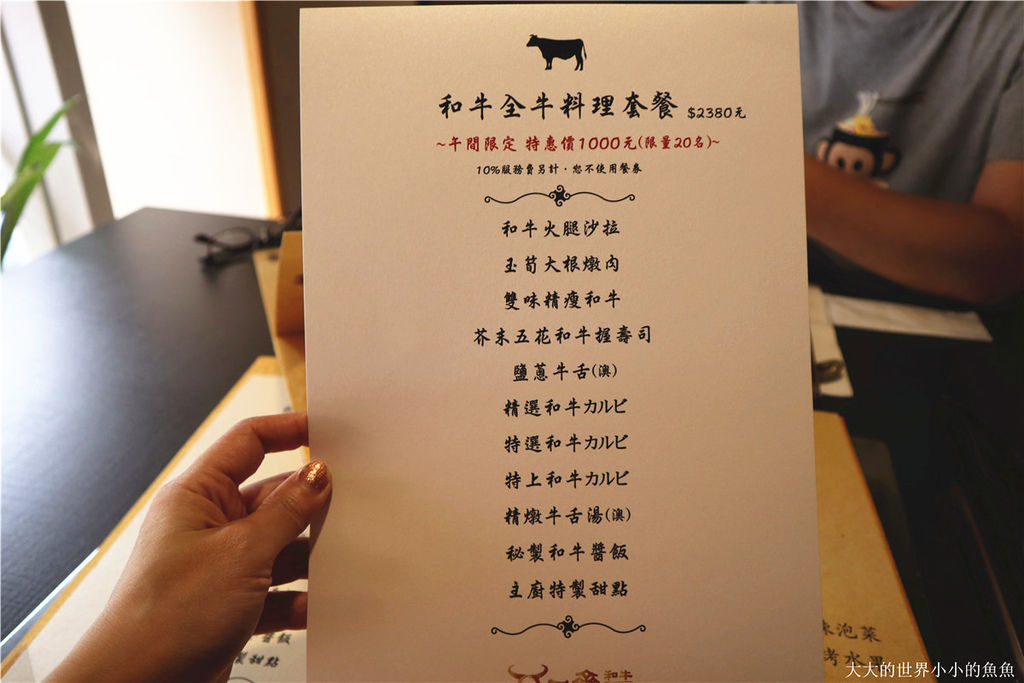 和牛全牛料理套餐 $2380元
~午間限定 特惠價1000元(限量20名)~
10%服務費另計，恕不使用餐券
和牛火腿沙拉
玉筍大根燉肉
雙味精瘦和牛
芥末五花和牛握壽司
鹽蔥牛舌(澳)
精選和牛カルビ
特選和牛カルビ
特上和牛カルビ
精燉牛舌湯(澳)
秘製和牛醬飯
主廚特製甜點
和牛
醬飯
製甜點
泡菜
烤水果
大大的世界小小的魚魚